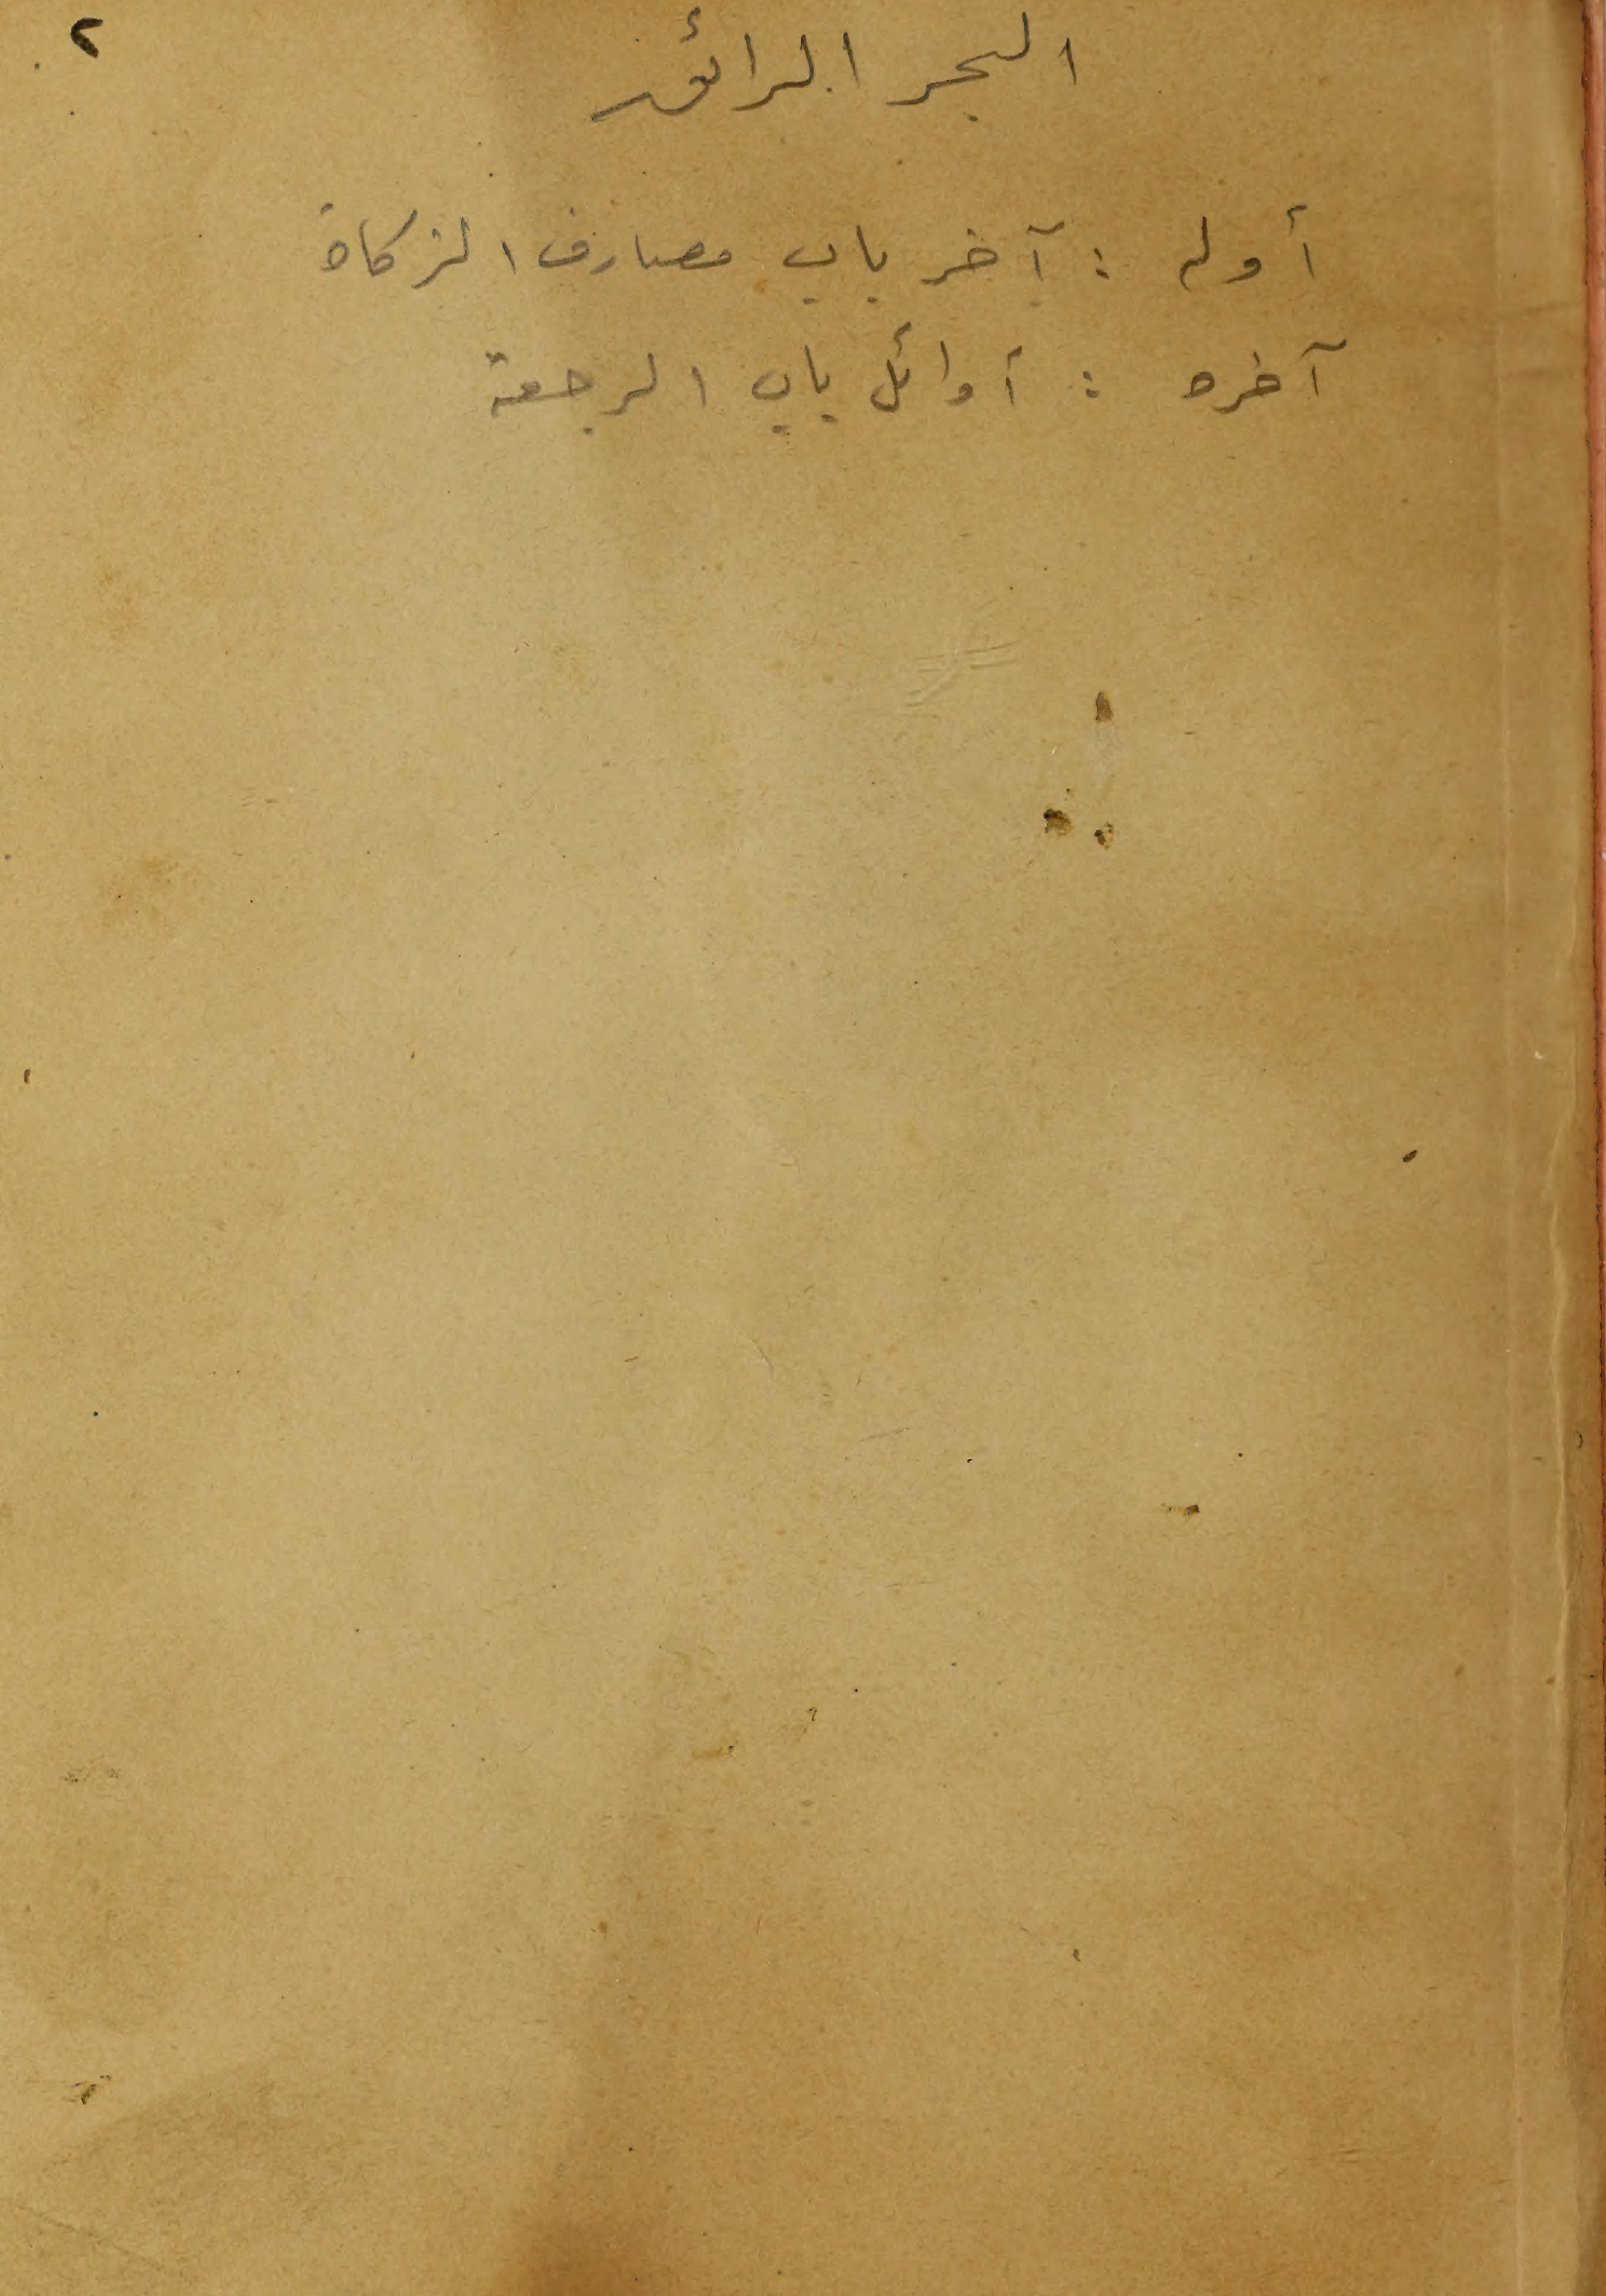 ٢
البحر الرائق
أوله : آخر باب مصارف الزكاة
آخره : أوائل باب الرجعة